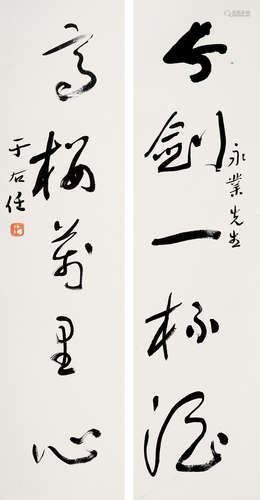 長劍一杯酒
永業先生
高樓萬里心
于右任